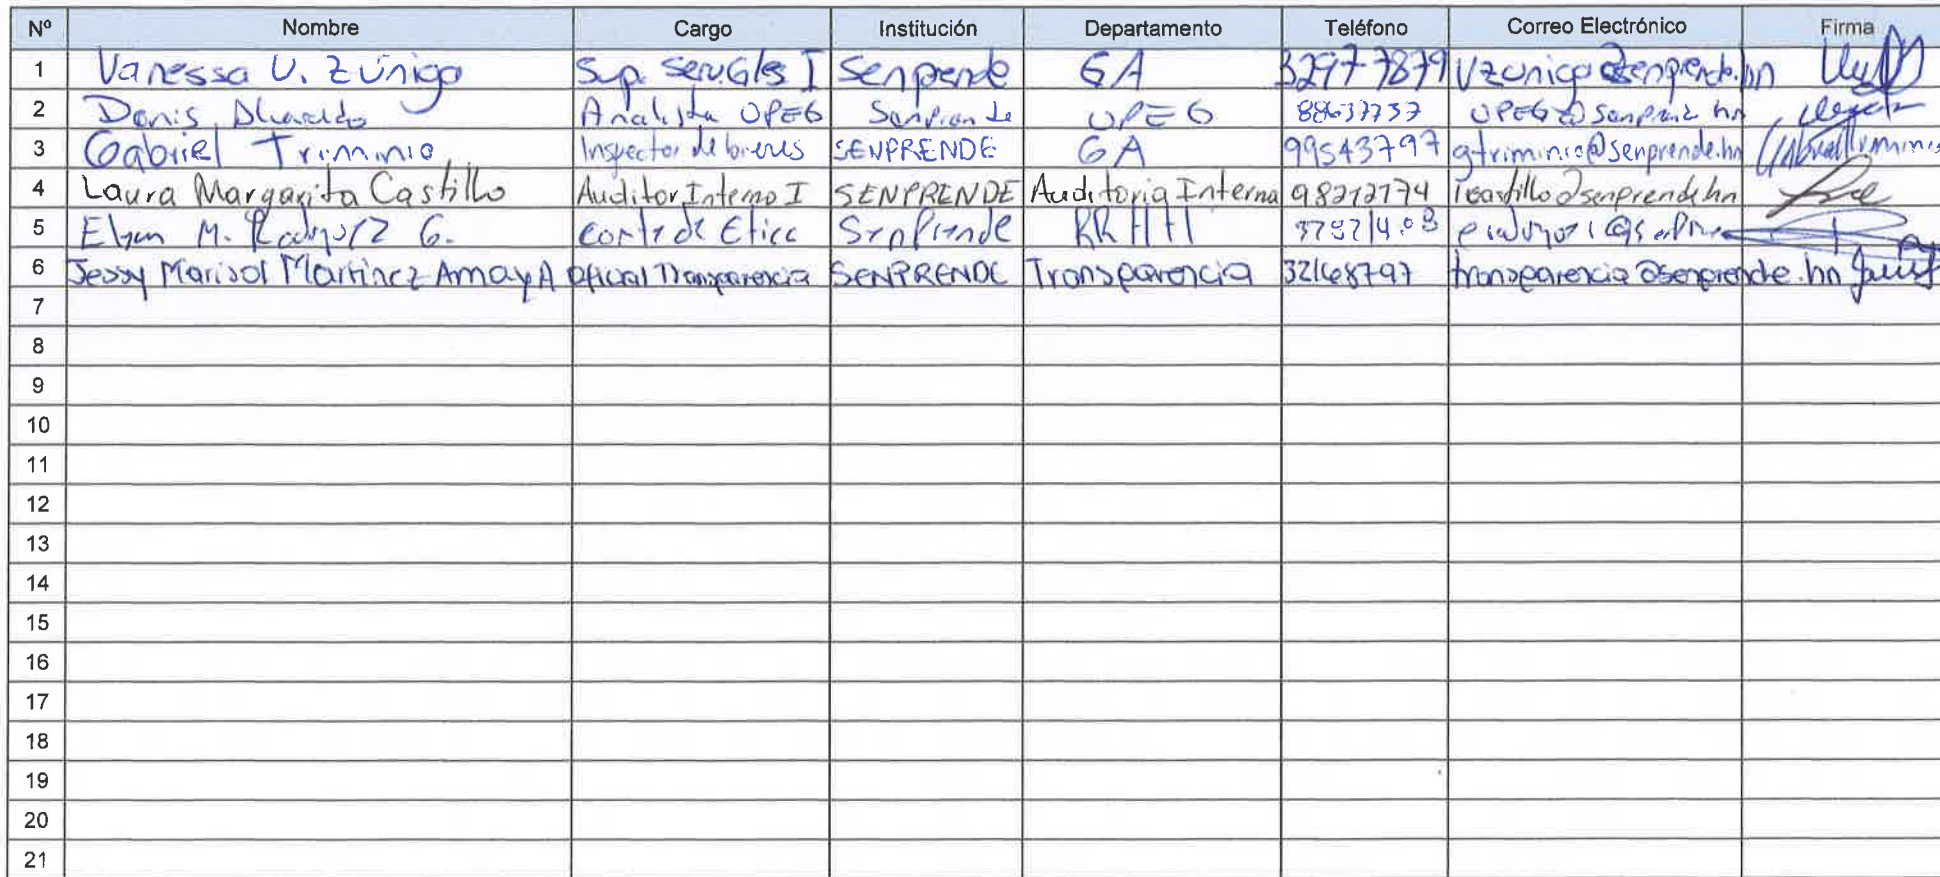 Nº Nombre Cargo Institución Departamento Teléfono Correo Electrónico Firma
1 Vanessa U. Zúniga Sup. Serv. Gles I Senprende GA 32977879 Vzuniga@senprende.hn
2 Denis Alvarado Analista UPEG Senprende UPEG 88637737
3 Gabriel Triminio Inspector de bienes SENPRENDE GA 99543797 gtriminio@senprende.hn Gabriel Triminio
4 Laura Margarita Castillo Auditor Interno I SENPRENDE Auditoria Interna 98212174 lcastillo@senprende.hn
5 M. G. Comite de Etica Senprende RRHH
6 Jessy Marisol Martinez AmayA Oficial Transparencia SENPRENDE Transparencia 32168797 transparencia@senprende.hn
7
8
9
10
11
12
13
14
15
16
17
18
19
20
21